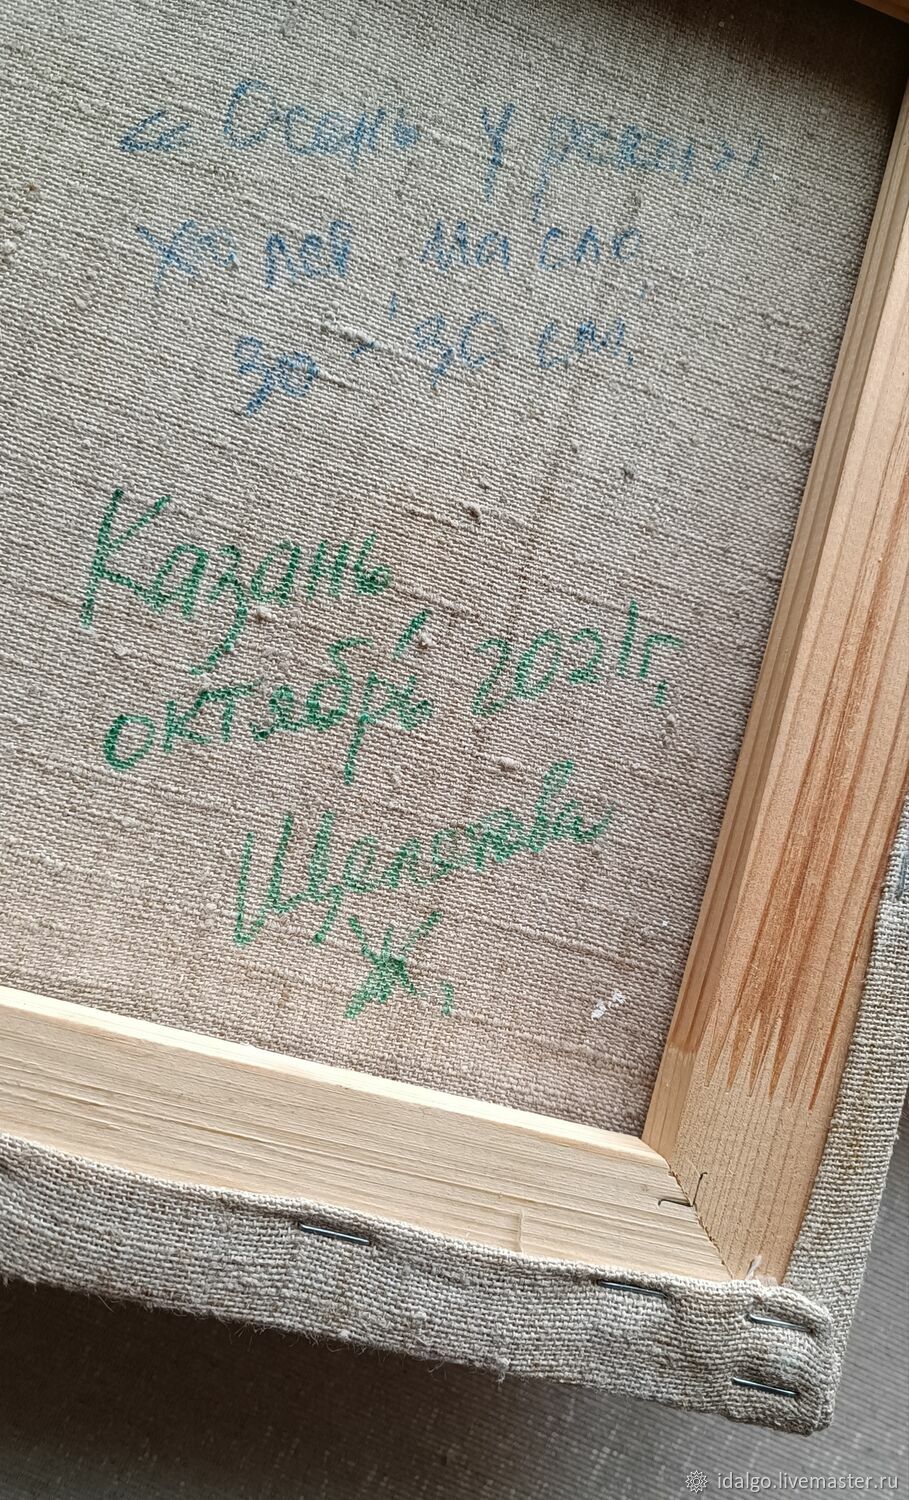 « Осень у реки»
холст, масло,
30 × 30 см.
Казань,
октябрь 2021г.
Ж.
idalgo.livemaster.ru